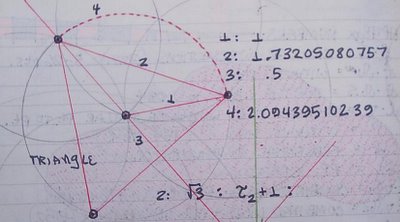 4
1: 1
2
2: 1.73205080757
3: .5
1
4: 2.09439510239
3
TRIANGLE
2: √3 : τ2+1 :